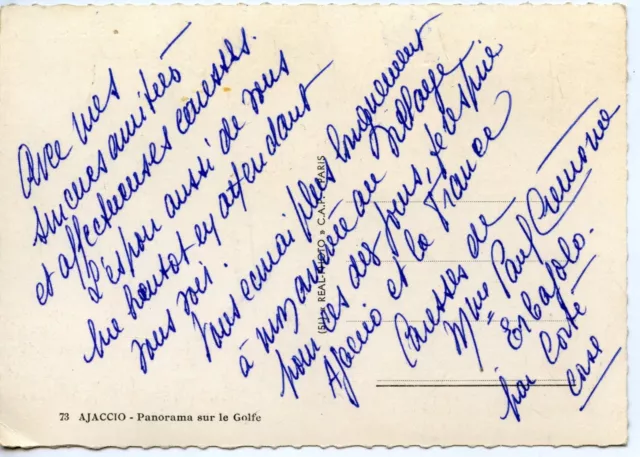 Avec mes
sincères amitiés
et affectueuses caresses.
L'espoir aussi de vous
lire bientôt en attendant
vous voir.
Vous écrirai plus longuement
à mon arrivée au village
pour ces dix jours,
Ajaccio et la France
Caresses de
Mme Paul Cremona
Erbajolo.
par Corté
Corse
(SEL) « REAL-PHOTO » C.A.P. PARIS
73 AJACCIO - Panorama sur le Golfe